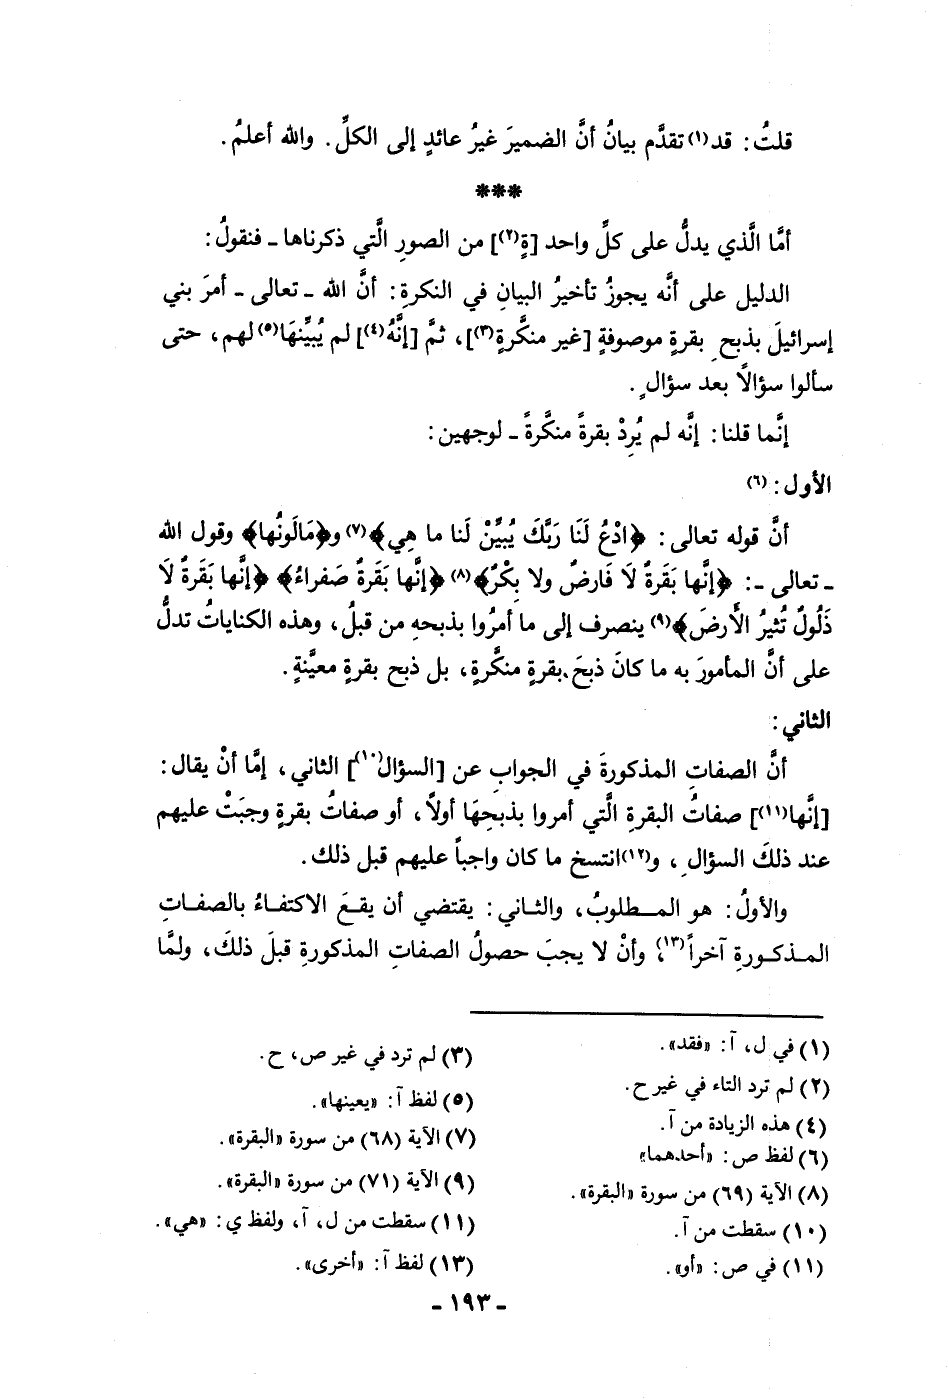 قلتُ: قد(١) تقدَّم بيانُ أنَّ الضميرَ غيرُ عائدٍ إلى الكلِّ. والله أعلمُ.
***
أمَّا الَّذي يدلُّ على كلِّ واحد [ةٍ(٢)] من الصورِ الَّتي ذكرناها ـ فنقولُ:
الدليل على أنَّه يجوزُ تأخيرُ البيانِ في النكرةِ: أنَّ الله ـ تعالى ـ أمرَ بني
إسرائيلَ بذبحِ بقرةٍ موصوفةٍ [غير منكَّرةٍ(٣)]، ثمَّ [إنَّهُ(٤)] لم يُبيِّنهَا(٥) لهم، حتى
سألوا سؤالاً بعد سؤالٍ.
إنَّما قلنا: إنَّه لم يُرِدْ بقرةً منكَّرةً ـ لوجهين:
الأول:(٦)
أنَّ قوله تعالى: ﴿ادْعُ لَنَا رَبَّكَ يُبيِّنْ لَنا ما هِي﴾(٧) و﴿مَالَونُها﴾ وقول الله
ـ تعالى ـ: ﴿إنَّها بَقَرةٌ لَا فَارضٌ ولا بِكْرٌ﴾(٨) ﴿إنَّها بَقَرةٌ صَفراءُ﴾ ﴿إنَّها بَقَرةٌ لَا
ذَلُولٌ تُثيرُ الأَرضَ﴾(٩) ينصرف إلى ما أمرُوا بذبحهِ من قبلُ، وهذه الكناياتُ تدلُّ
على أنَّ المأمورَ به ما كانَ ذبحَ بقرةٍ منكَّرةٍ، بل ذبح بقرةٍ معيَّنةٍ.
الثاني:
أنَّ الصفاتِ المذكورةَ في الجوابِ عن [السؤال(١٠)] الثاني، إمَّا أنْ يقال:
[إنَّها(١١)] صفاتُ البقرةِ الَّتي أمروا بذبحِهَا أولاً، أو صفاتُ بقرةٍ وجبَتْ عليهم
عند ذلكَ السؤالِ، و(١٢)انتسخ ما كان واجباً عليهم قبل ذلك.
والأولُ: هو المـطلوبُ، والثـاني: يقتضي أن يقـعَ الاكتفـاءُ بالصفـاتِ
المـذكـورةِ آخراً(١٣)، وأنْ لا يجبَ حصولُ الصفاتِ المذكورةِ قبلَ ذلكَ، ولمَّا
(١) في ل، آ: «فقد».
(٢) لم ترد التاء في غير ح.
(٣) لم ترد في غير ص، ح.
(٤) هذه الزيادة من آ.
(٥) لفظ آ: «يعينها».
(٦) لفظ ص: «أحدهما»
(٧) الآية (٦٨) من سورة «البقرة».
(٨) الآية (٦٩) من سورة «البقرة».
(٩) الآية (٧١) من سورة «البقرة».
(١٠) سقطت من آ.
(١١) سقطت من ل، آ، ولفظ ي: «هي».
(١١) في ص: «أو».
(١٣) لفظ آ: «أخرى».
- ١٩٣ -